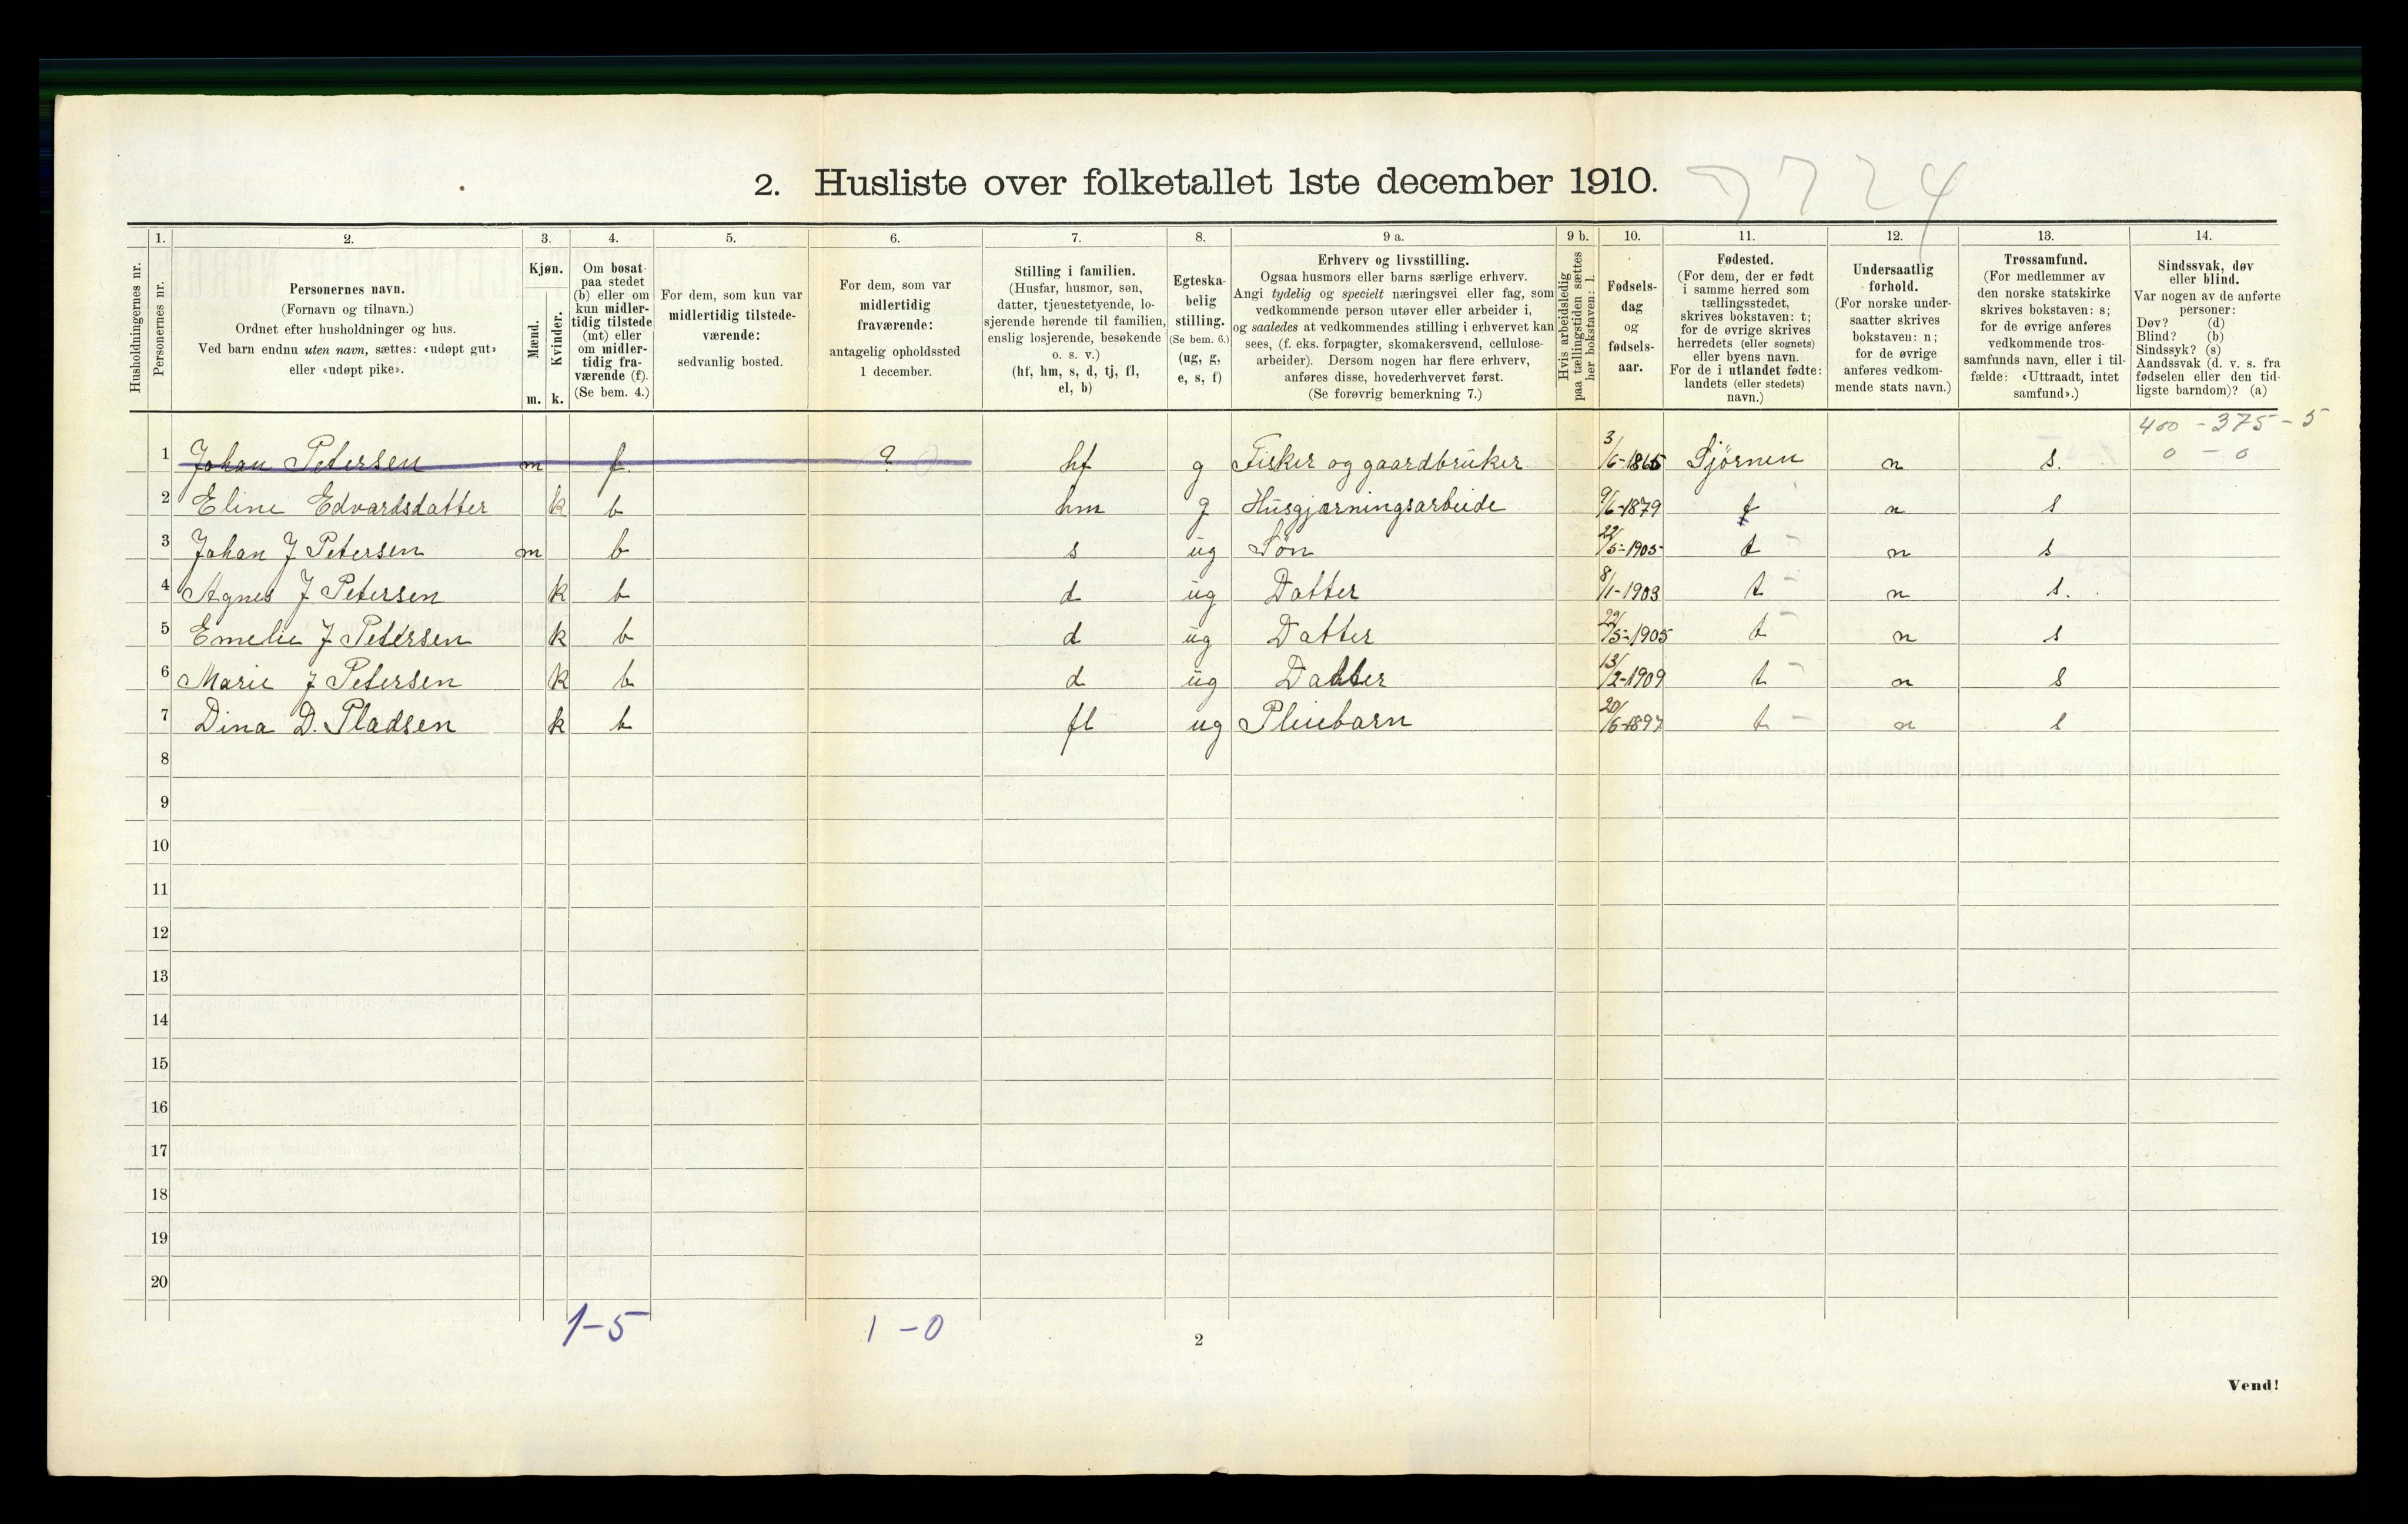 2. Husliste over folketallet 1ste december 1910.
7724
1. 2. 3. 4. 5. 6. 7. 8. 9 a. 9 b. 10. 11. 12. 13. 14.
Husholdningernes nr.
Personernes nr.
Personernes navn.
(Fornavn og tilnavn.)
Ordnet efter husholdninger og hus.
Ved barn endnu uten navn, sættes: «udøpt gut»
eller «udøpt pike».
Kjøn.
Mænd.
Kvinder.
m. k.
Om bosat
paa stedet
(b) eller om
kun midler-
tidig tilstede
(mt) eller
om midler-
tidig fra-
værende (f).
(Se bem. 4.)
For dem, som kun var
midlertidig tilstede-
værende:
sedvanlig bosted.
For dem, som var
midlertidig
fraværende:
antagelig opholdssted
1 december.
Stilling i familien.
(Husfar, husmor, søn,
datter, tjenestetyende, lo-
sjerende hørende til familien,
enslig losjerende, besøkende
o. s. v.)
(hf, hm, s, d, tj, fl,
el, b)
Egteska-
belig
stilling.
(Se bem. 6.)
(ug, g,
e, s, f)
Erhverv og livsstilling.
Ogsaa husmors eller barns særlige erhverv.
Angi tydelig og specielt næringsvei eller fag, som
vedkommende person utøver eller arbeider i,
og saaledes at vedkommendes stilling i erhvervet kan
sees, (f. eks. forpagter, skomakersvend, cellulose-
arbeider). Dersom nogen har flere erhverv,
anføres disse, hovederhvervet først.
(Se forøvrig bemerkning 7.)
Hvis arbeidsledig
paa tællingstiden sættes
her bokstaven: l.
Fødsels-
dag
og
fødsels-
aar.
Fødested.
(For dem, der er født
i samme herred som
tællingsstedet,
skrives bokstaven: t;
for de øvrige skrives
herredets (eller sognets)
eller byens navn.
For de i utlandet fødte:
landets (eller stedets)
navn.)
Undersaatlig
forhold.
(For norske under-
saatter skrives
bokstaven: n;
for de øvrige
anføres vedkom-
mende stats navn.)
Trossamfund.
(For medlemmer av
den norske statskirke
skrives bokstaven: s;
for de øvrige anføres
vedkommende tros-
samfunds navn, eller i til-
fælde: «Uttraadt, intet
samfund».)
Sindssvak, døv
eller blind.
Var nogen av de anførte
personer:
Døv? (d)
Blind? (b)
Sindssyk? (s)
Aandssvak (d. v. s. fra
fødselen eller den tid-
ligste barndom)? (a)
400 - 375 - 5
0 - 0
1 Johan Petersen m f ? hf g Fisker og gaardbruker 3/6-1865 Stjørnen n s.
2 Eline Edvardsdatter k b hm g Husgjørningsarbeide 9/6-1879 t n s
3 Johan J Petersen m b s ug Søn 22/5-1905 t n s
4 Agnes J Petersen k b d ug Datter 8/1-1903 t n s.
5 Emelie J Petersen k b d ug Datter 22/5-1905 t n s
6 Marie J Petersen k b d ug Datter 13/2-1909 t n s
7 Dina D. Pladsen k b fl ug Pleiebarn 20/6-1897 t n s
8
9
10
11
12
13
14
15
16
17
18
19
20
1-5 1-0
2
Vend!